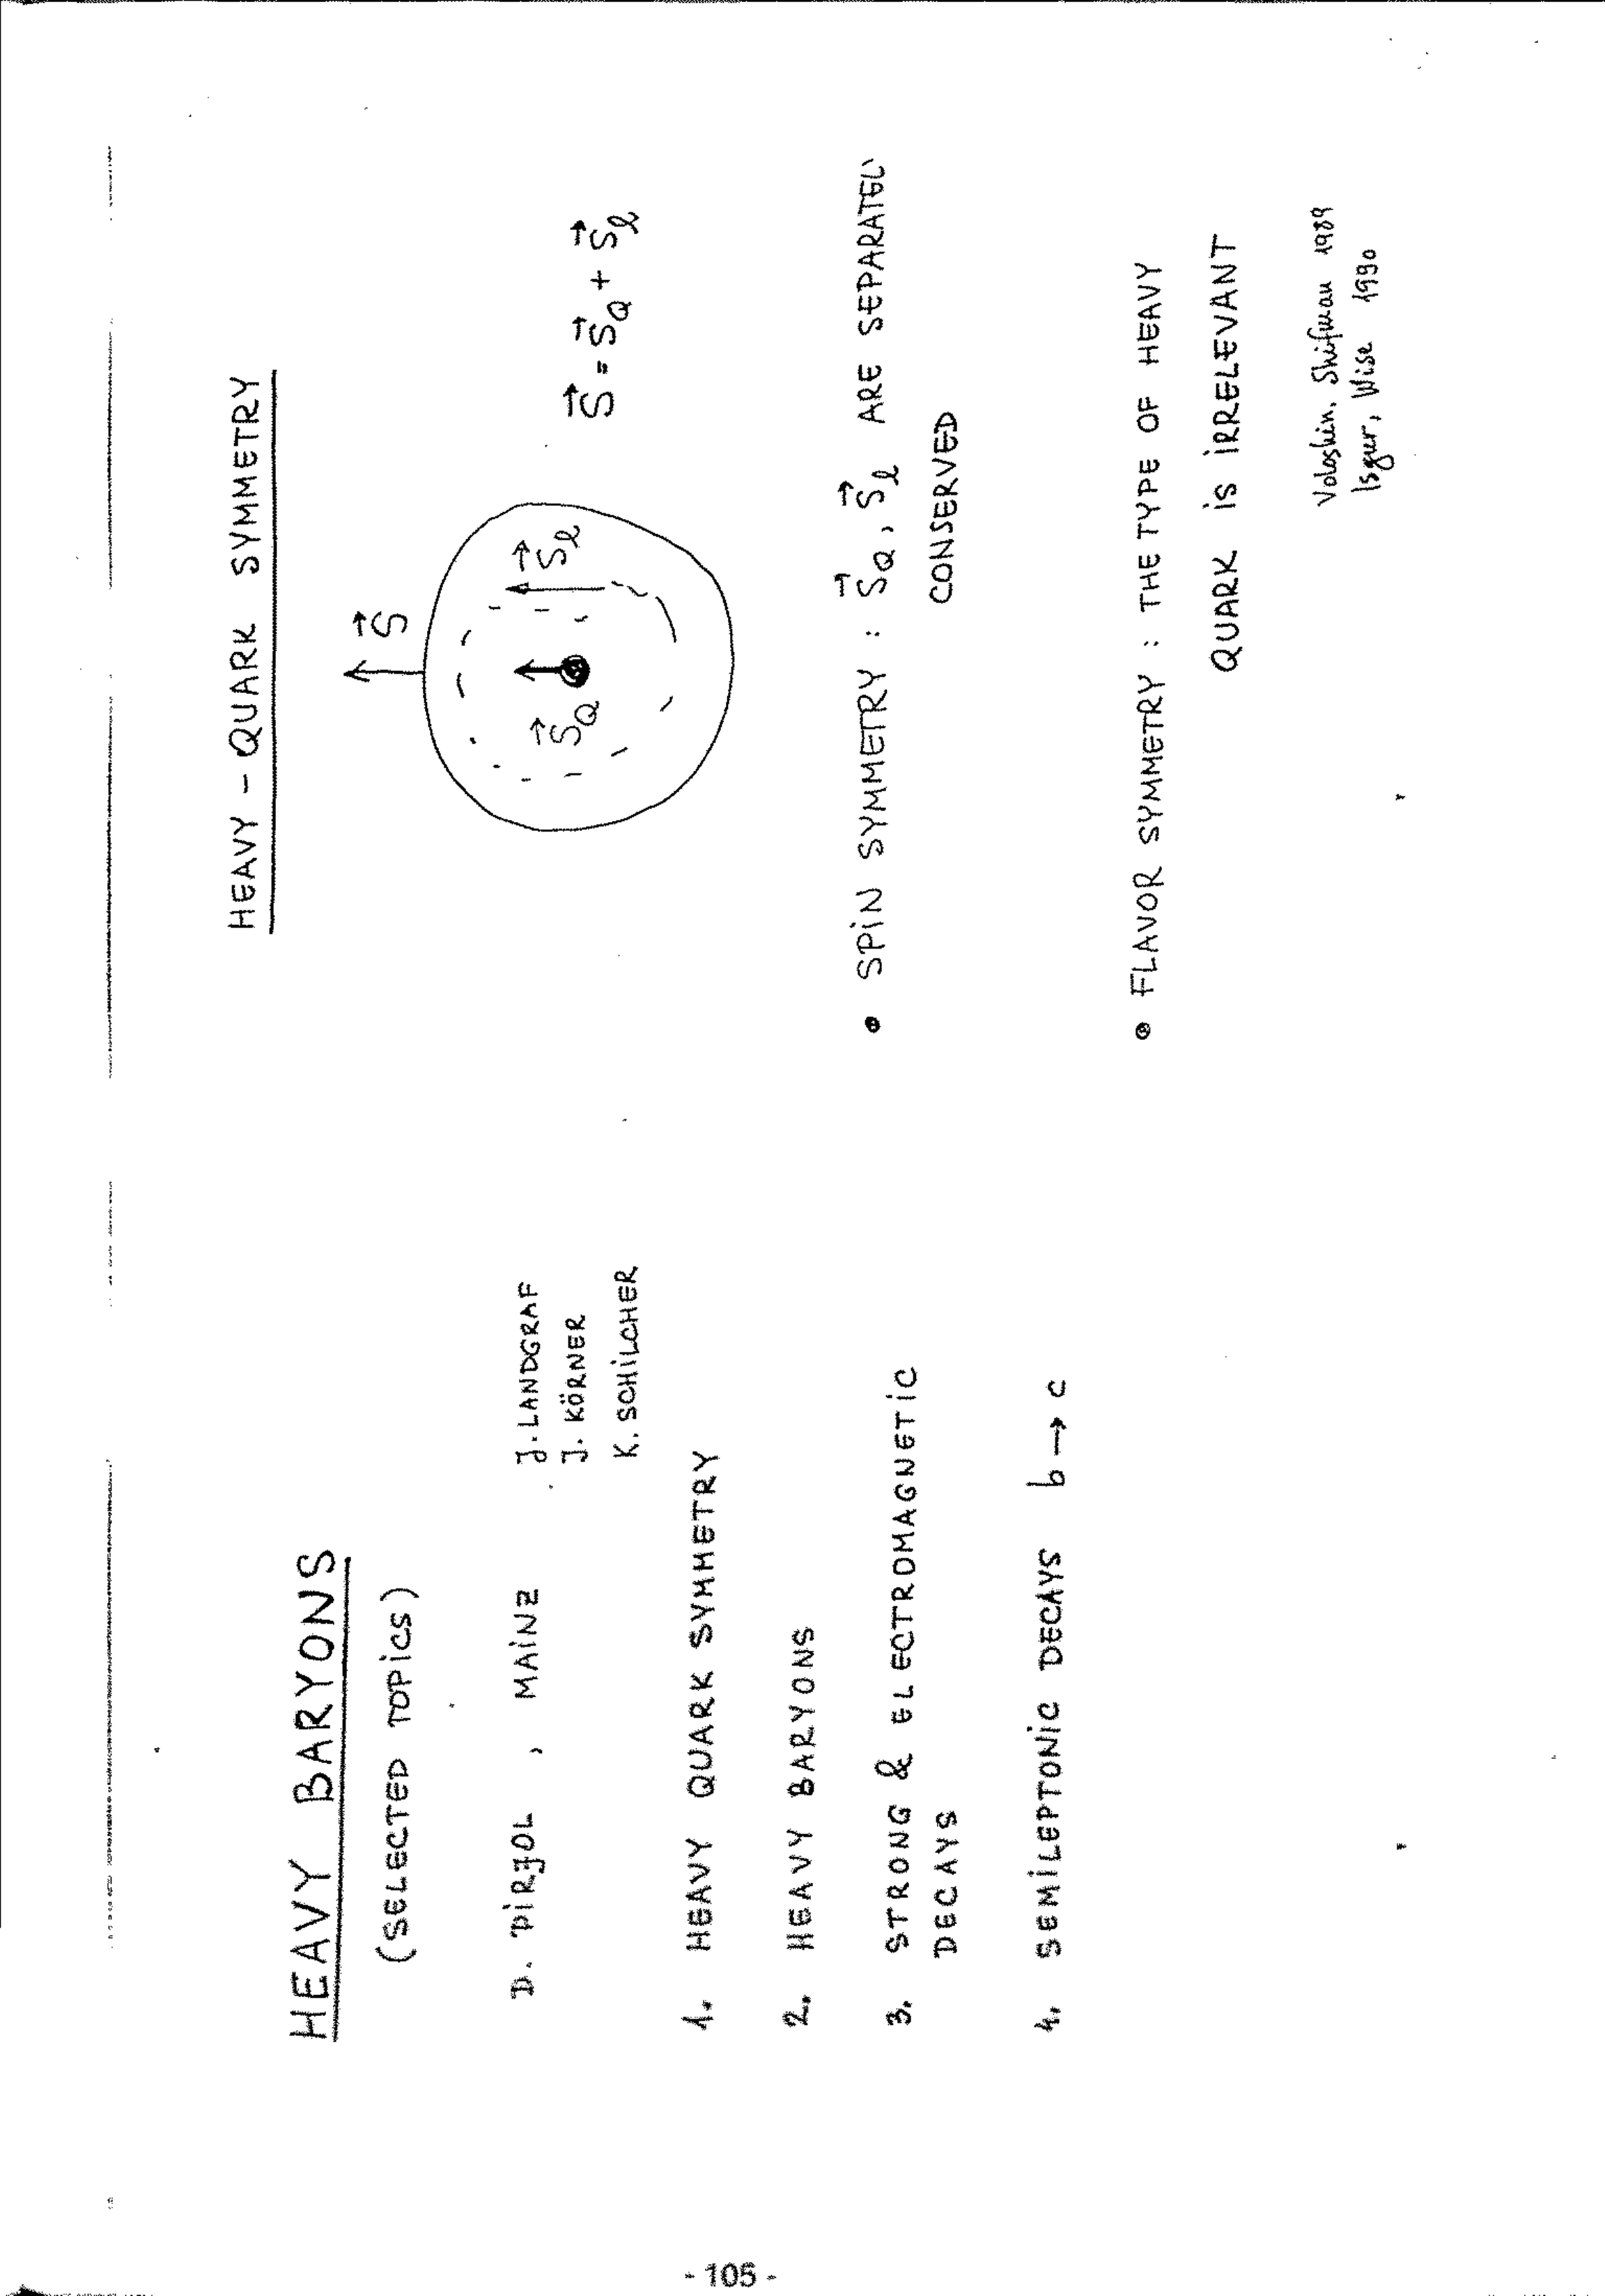 HEAVY BARYONS
(SELECTED TOPiCS)
D. PiRJOL , MAiNZ
J. LANDGRAF
J. KÖRNER
K. SCHiLCHER
1. HEAVY QUARK SYMMETRY
2. HEAVY BARYONS
3. STRONG & ELECTROMAGNETiC
DECAYS
4. SEMiLEPTONiC DECAYS b → c
HEAVY - QUARK SYMMETRY
S⃗
S⃗_Q
S⃗_ℓ
S⃗ = S⃗_Q + S⃗_ℓ
• SPiN SYMMETRY : S⃗_Q , S⃗_ℓ ARE SEPARATEL
CONSERVED
• FLAVOR SYMMETRY : THE TYPE OF HEAVY
QUARK iS iRRELEVANT
Voloshin, Shifman 1989
Isgur, Wise 1990
- 105 -